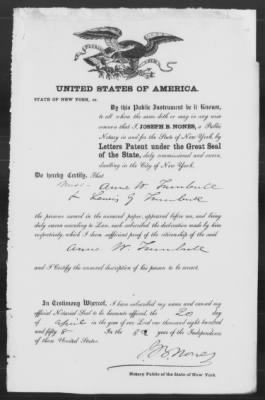 UNITED STATES OF AMERICA.
STATE OF NEW YORK, ss.
By this Public Instrument be it Known,
to all whom the same doth or may in any wise
concern that I, JOSEPH B. NONES, a Public
Notary in and for the State of New York, by
Letters Patent under the Great Seal
of the State, duly commissioned and sworn,
dwelling in the City of New York,
Do hereby Certify, That
Anne W. Turnbull
& Lewis G Turnbull
the persons named in the annexed paper, appeared before me, and being
duly sworn according to Law, each subscribed the declaration made by him
respectively, which I deem sufficient proof of the citizenship of the said
Anne W. Turnbull
and I Certify the annexed description of his person to be correct.
In Testimony Whereof, I have subscribed my name and caused my
official Notarial Seal to be hereunto affixed, the 20 day
of April in the year of our Lord one thousand eight hundred
and fifty 8 In the 82 year of the Independence
of these United States.
J B Nones
Notary Public of the State of New York